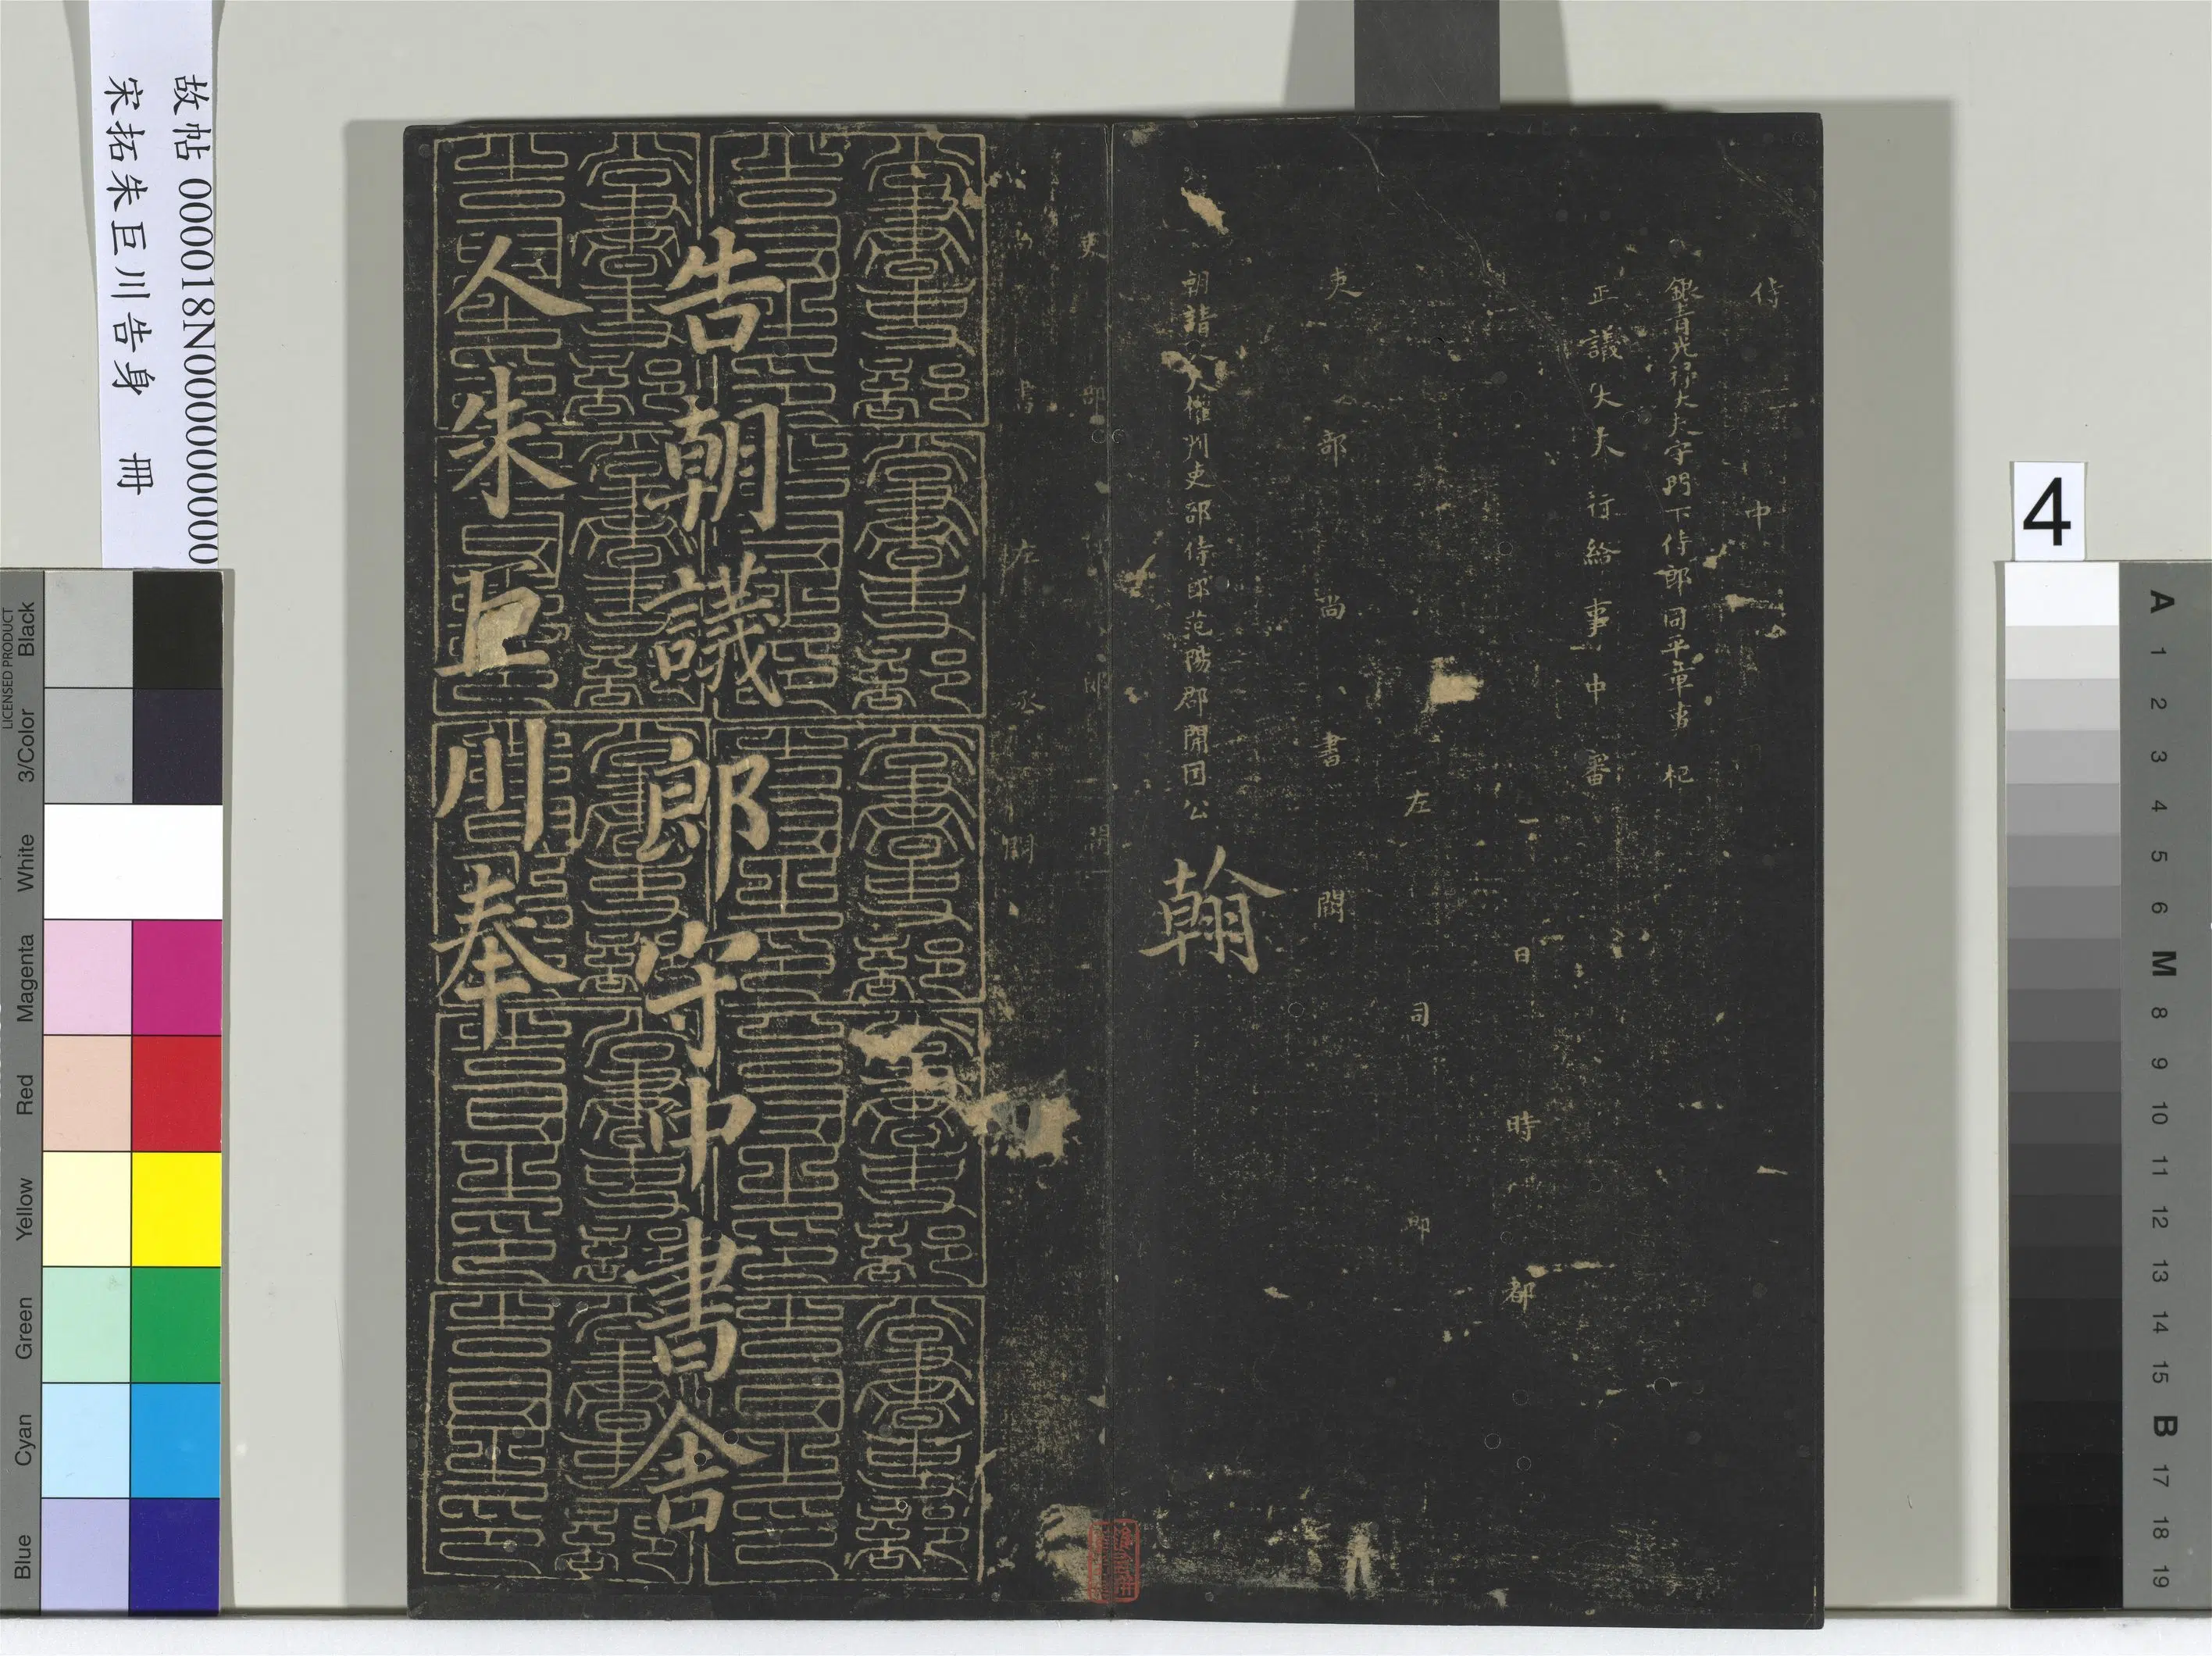 故帖 000018N000000000
宋拓朱巨川告身 冊
侍中
銀青光祿大夫守門下侍郎同平章事 杞
正議大夫行給事中 審
日 時 都
左司郎
吏部尚書 闕
朝請大夫權判吏部侍郎范陽郡開國公 翰
吏部侍郎 闕
尚書左丞 闕
告朝議郎守中書舍
人朱巨川奉
尚書吏部告身之印
4
LICENSED PRODUCT
Black
3/Color
White
Magenta
Red
Yellow
Green
Cyan
Blue
A
1
2
3
4
5
6
M
8
9
10
11
12
13
14
15
B
17
18
19